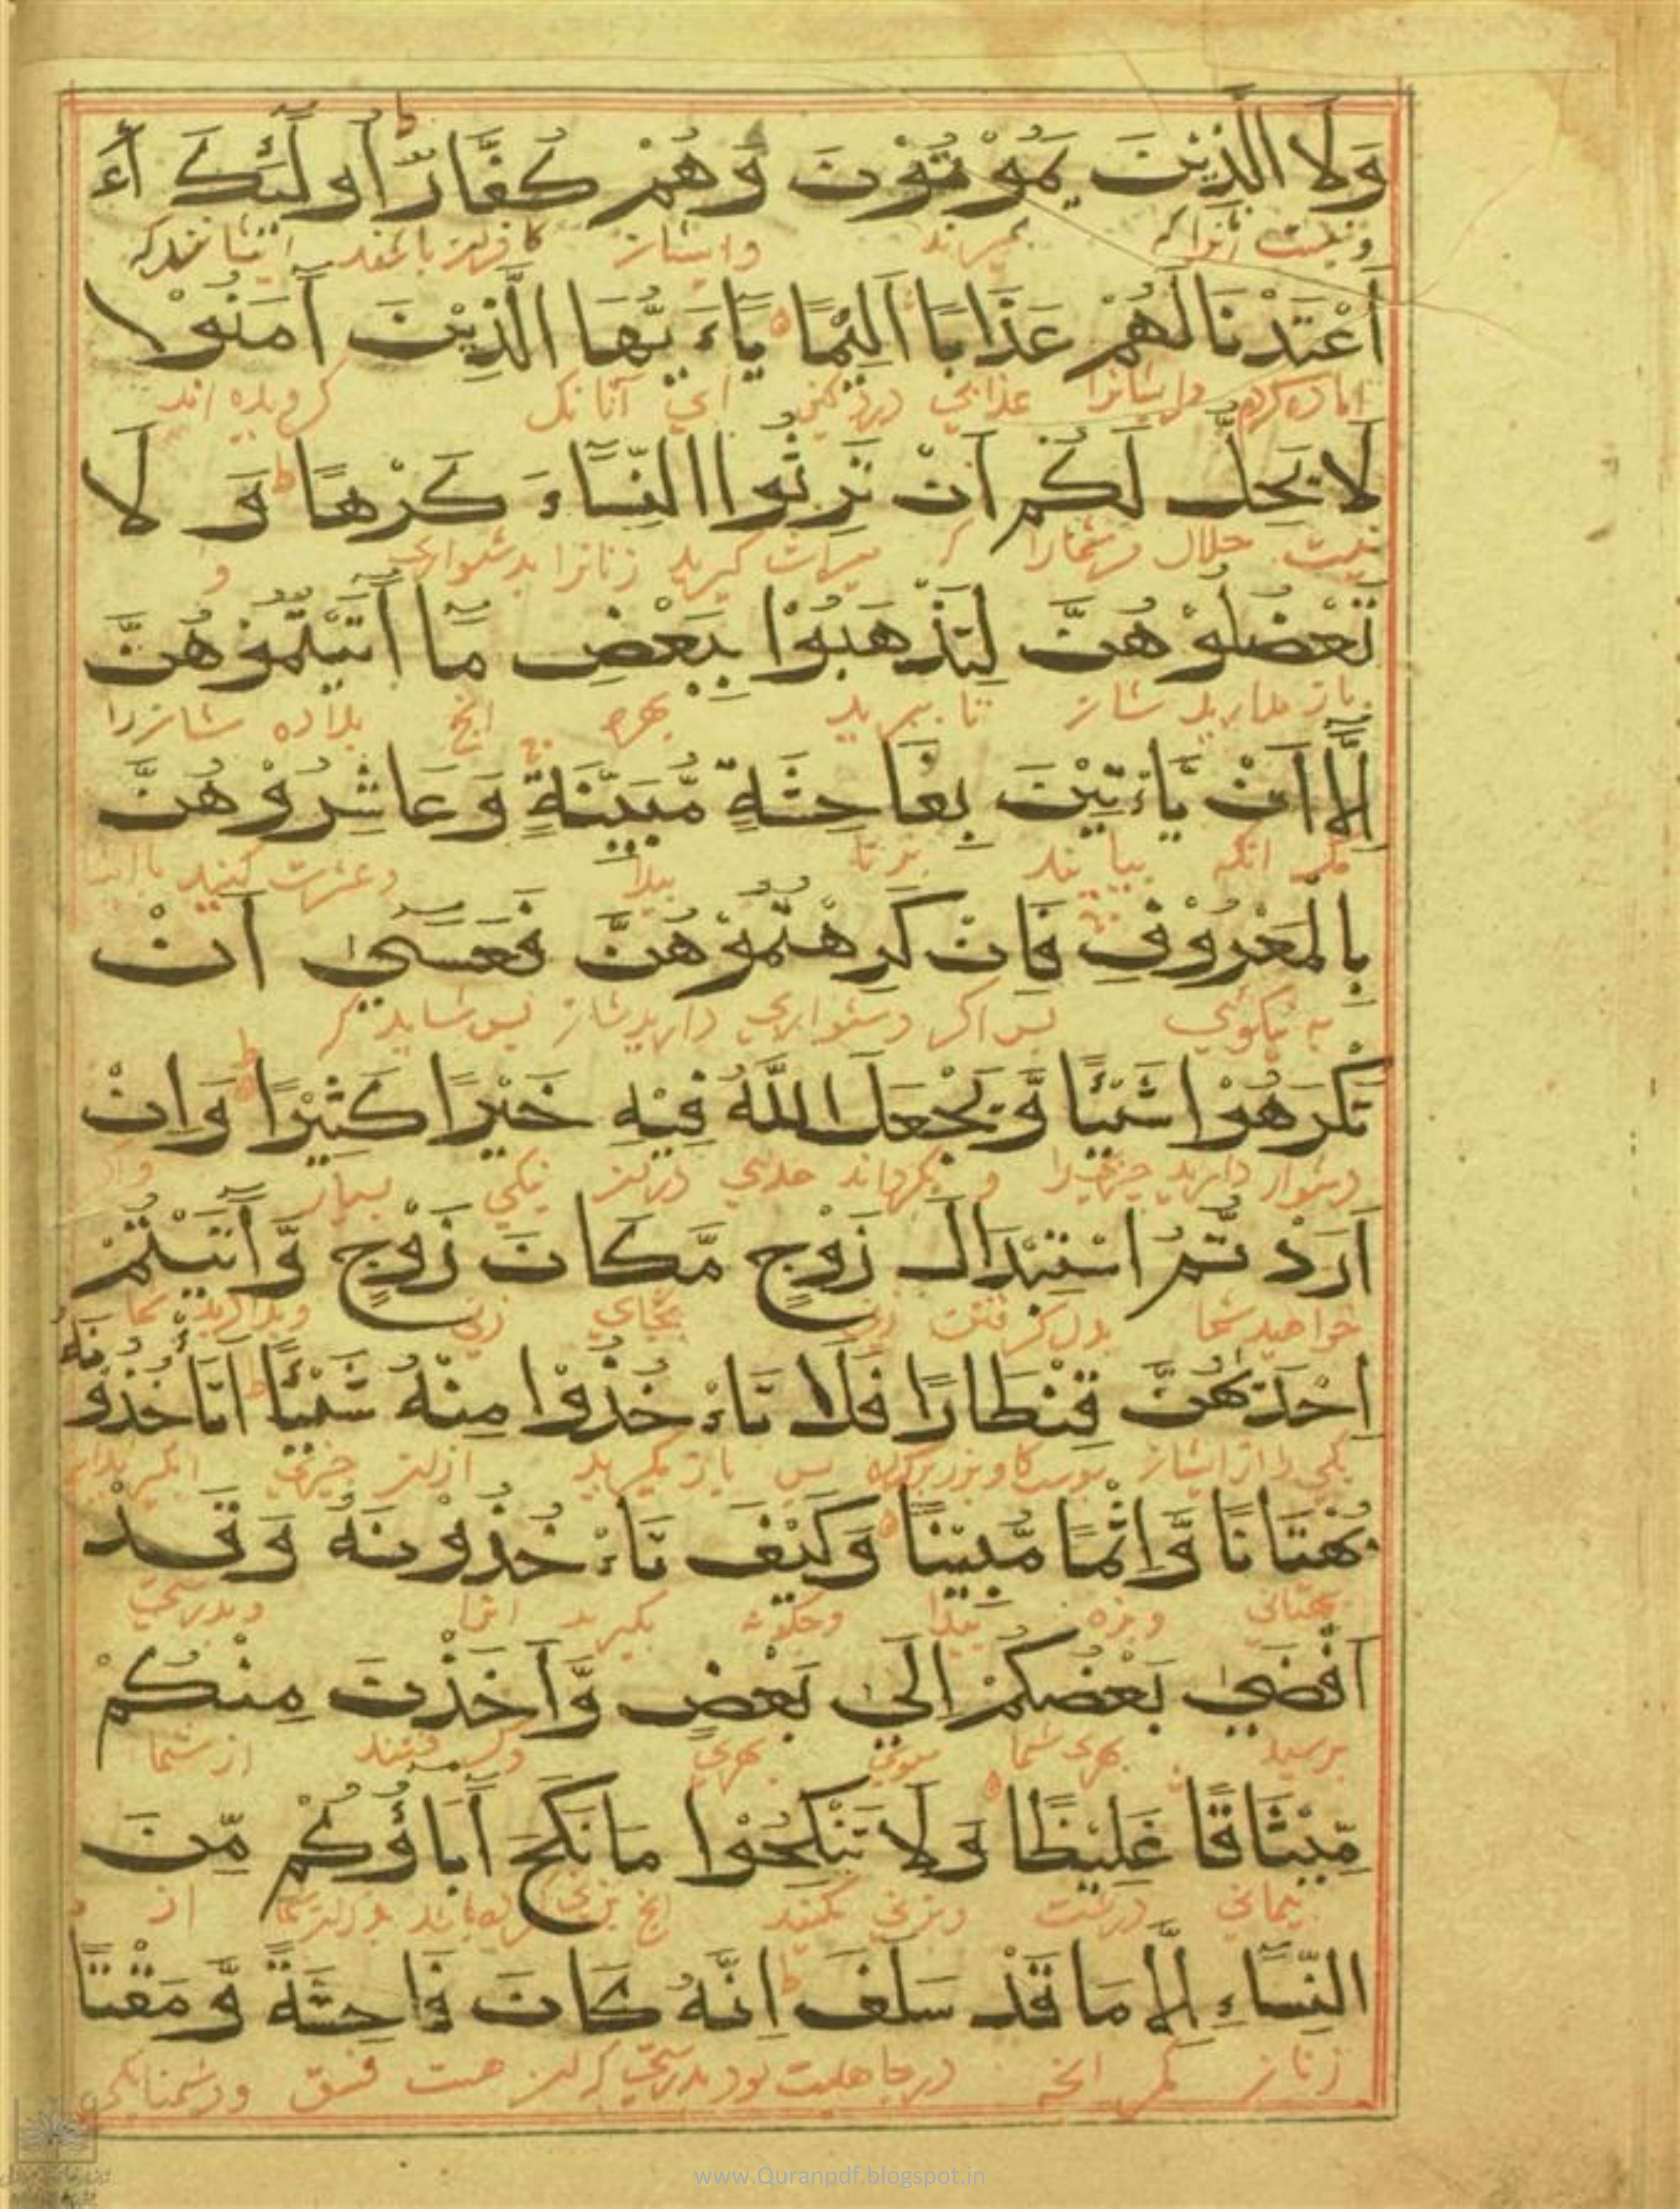 وَلَا الَّذِيْنَ يَمُوْتُوْنَ وَهُمْ كُفَّارٌ اُولٰٓئِكَ أَءَ
ونیست آنرا که بمیرند وایشان کافرند
أَعْتَدْنَا لَهُمْ عَذَابًا اَلِيْمًا يَاءَيُّهَا الَّذِيْنَ آمَنُوْا لا
اماده کرده وایشانرا عذابی دردکنی ای آنانکه کرویده اند
لَا يَحِلُّ لَكُمْ اَنْ تَرِثُوا النِّسَآءَ كَرْهًا وَ لَا
نیست حلال مرشمارا که میراث کیرید زنانرا بدشواری و
تَعْضُلُوْهُنَّ لِتَذْهَبُوْا بِبَعْضِ مَآ اٰتَيْتُمُوْهُنَّ
باز مدارید شان تا ببرید بهره انچ بداده شانرا
اِلَّآ اَنْ يَّاءْتِيْنَ بِفَاحِشَةٍ مُّبَيِّنَةٍ وَعَاشِرُوْهُنَّ
مکر انکه بیایند بزنا پیدا وعشرت کنید
بِالْمَعْرُوْفِ فَاِنْ كَرِهْتُمُوْهُنَّ فَعَسٰٓى اَنْ
به نیکوئی پس اکر دشواری دارید شان پس شاید که
تَكْرَهُوْا شَيْئًا وَّيَجْعَلَ اللّٰهُ فِيْهِ خَيْرًا كَثِيْرًا وَاِنْ
دشوار دارید چیزیرا و بکرداند خدای دران نیکی بسیار واکر
اَرَدْتُّمُ اسْتِبْدَالَ زَوْجٍ مَّكَانَ زَوْجٍ وَّآتَيْتُمْ
خواهید شما بدل کرفتن زنی بجای زنی
اِحْدٰهُنَّ قِنْطَارًا فَلَا تَاءْخُذُوْا مِنْهُ شَيْئًا اَتَاْخُذُوْنَهٗ
یکی را از ایشان پوست کاو پس باز مکیرید ازان چیزی
بُهْتَانًا وَّاِثْمًا مُّبِيْنًا وَكَيْفَ تَاءْخُذُوْنَهٗ وَقَدْ
بهتانی وبزه پیدا وچکونه بکیرید انرا وبدرستی
اَفْضٰى بَعْضُكُمْ اِلٰى بَعْضٍ وَّاَخَذْنَ مِنْكُمْ
برسید بهری شما سوی بهری وکرفتند از شما
مِّيْثَاقًا غَلِيْظًا وَلَا تَنْكِحُوْا مَا نَكَحَ آبَاؤُكُمْ مِّنَ
پیمانی درشت وبزنی مکنید انچ بزنی از
النِّسَآءِ اِلَّا مَا قَدْ سَلَفَ اِنَّهٗ كَانَ فَاحِشَةً وَّمَقْتًا
زنان مکر انچه درجاهلیت بود بدرستی که ان هست فسق ودشمنایکی
www.Quranpdf.blogspot.in